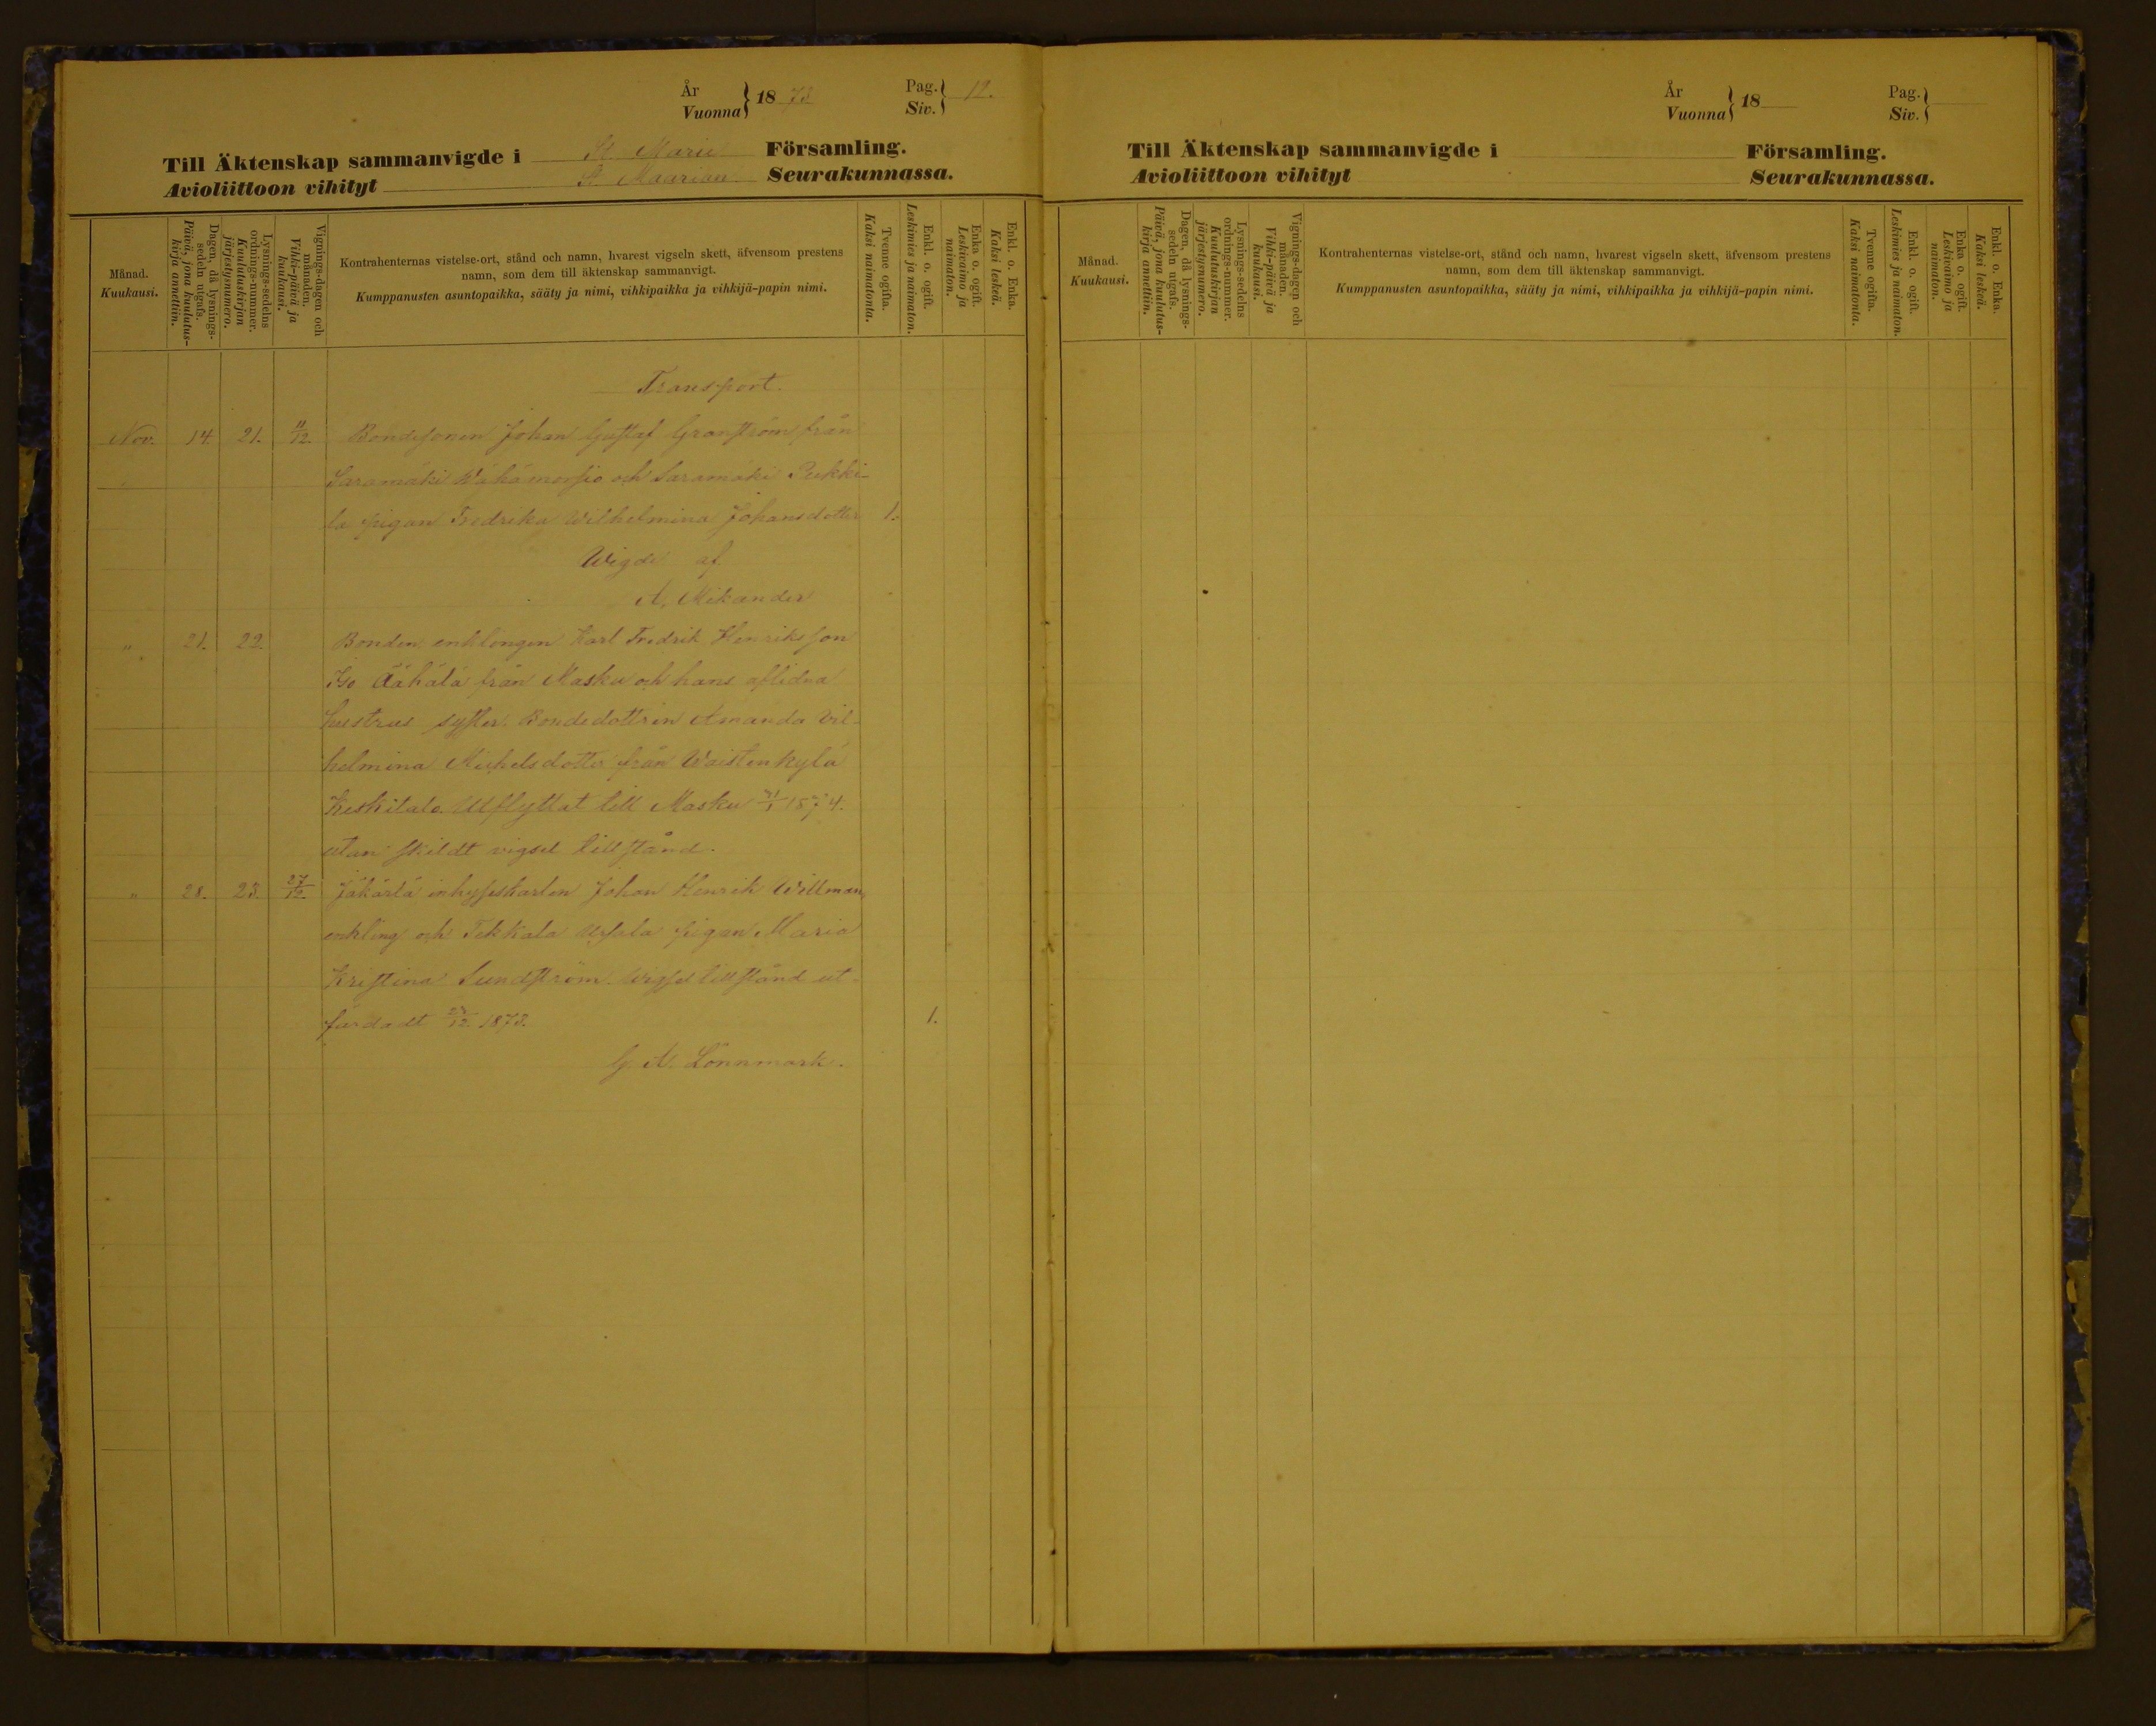 År
Vuonna } 18 73
Pag.
Siv. } 12.
Till Äktenskap sammanvigde i St. Marie Församling.
Avioliittoon vihityt S. Maarian Seurakunnassa.
Månad.
Kuukausi.
Dagen, då lysnings-
sedeln utgafs.
Päivä, jona kuulutus-
kirja annettiin.
Lysnings-sedelns
ordnings-nummer.
Kuulutuskirjan
järjestysnumero.
Vignings-dagen och
månaden.
Vihki-päivä ja
kuukausi.
Kontrahenternas vistelse-ort, stånd och namn, hvarest vigseln skett, äfvensom prestens
namn, som dem till äktenskap sammanvigt.
Kumppanusten asuntopaikka, sääty ja nimi, vihkipaikka ja vihkijä-papin nimi.
Tvenne ogifta.
Kaksi naimatonta.
Enkl. o. ogift.
Leskimies ja naimaton.
Enka o. ogift.
Leskivaimo ja
naimaton.
Enkl. o. Enka.
Kaksi leskeä.
Transport.
Nov. 14. 21. 11/12. Bondesonen Johan Gustaf Granström från
Saramäki Wähämossio och Saramäki Pukki-
la pigan Fredrika Wilhelmina Johansdotter 1.
Wigde af
A. Mikander
" 21. 22. Bonden enklingen Karl Fredrik Henriksson
Iso Äähälä från Masku och hans aflidna
hustrus syster Bondedottren Amanda Vil-
helmina Michelsdotter från Waistenkylä
Keskitalo. Utflyttat till Masku 31/1 1874.
utan skildt vigsel tillstånd.
" 28. 23. 27/12. Jäkärlä inhysiskarlen Johan Henrik Willman,
enkling och Tekkala pigan Maria
Kristina Sundström. Vigsel tillstånd ut-
färdadt 23/12. 1873. 1.
G. A. Lönnmark.
År
Vuonna } 18
Pag.
Siv. }
Till Äktenskap sammanvigde i Församling.
Avioliittoon vihityt Seurakunnassa.
Månad.
Kuukausi.
Dagen, då lysnings-
sedeln utgafs.
Päivä, jona kuulutus-
kirja annettiin.
Lysnings-sedelns
ordnings-nummer.
Kuulutuskirjan
järjestysnumero.
Vignings-dagen och
månaden.
Vihki-päivä ja
kuukausi.
Kontrahenternas vistelse-ort, stånd och namn, hvarest vigseln skett, äfvensom prestens
namn, som dem till äktenskap sammanvigt.
Kumppanusten asuntopaikka, sääty ja nimi, vihkipaikka ja vihkijä-papin nimi.
Tvenne ogifta.
Kaksi naimatonta.
Enkl. o. ogift.
Leskimies ja naimaton.
Enka o. ogift.
Leskivaimo ja
naimaton.
Enkl. o. Enka.
Kaksi leskeä.